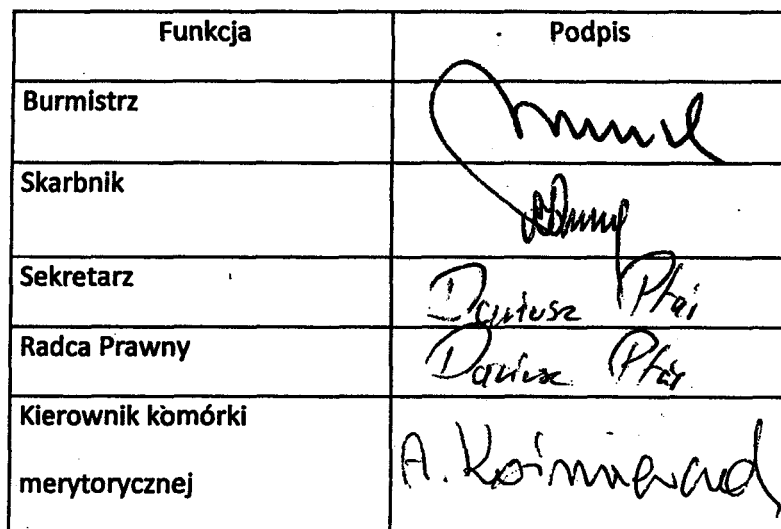 Funkcja Podpis
Burmistrz
Skarbnik
Sekretarz Dariusz Ptaś
Radca Prawny Dariusz Ptaś
Kierownik komórki
merytorycznej A.